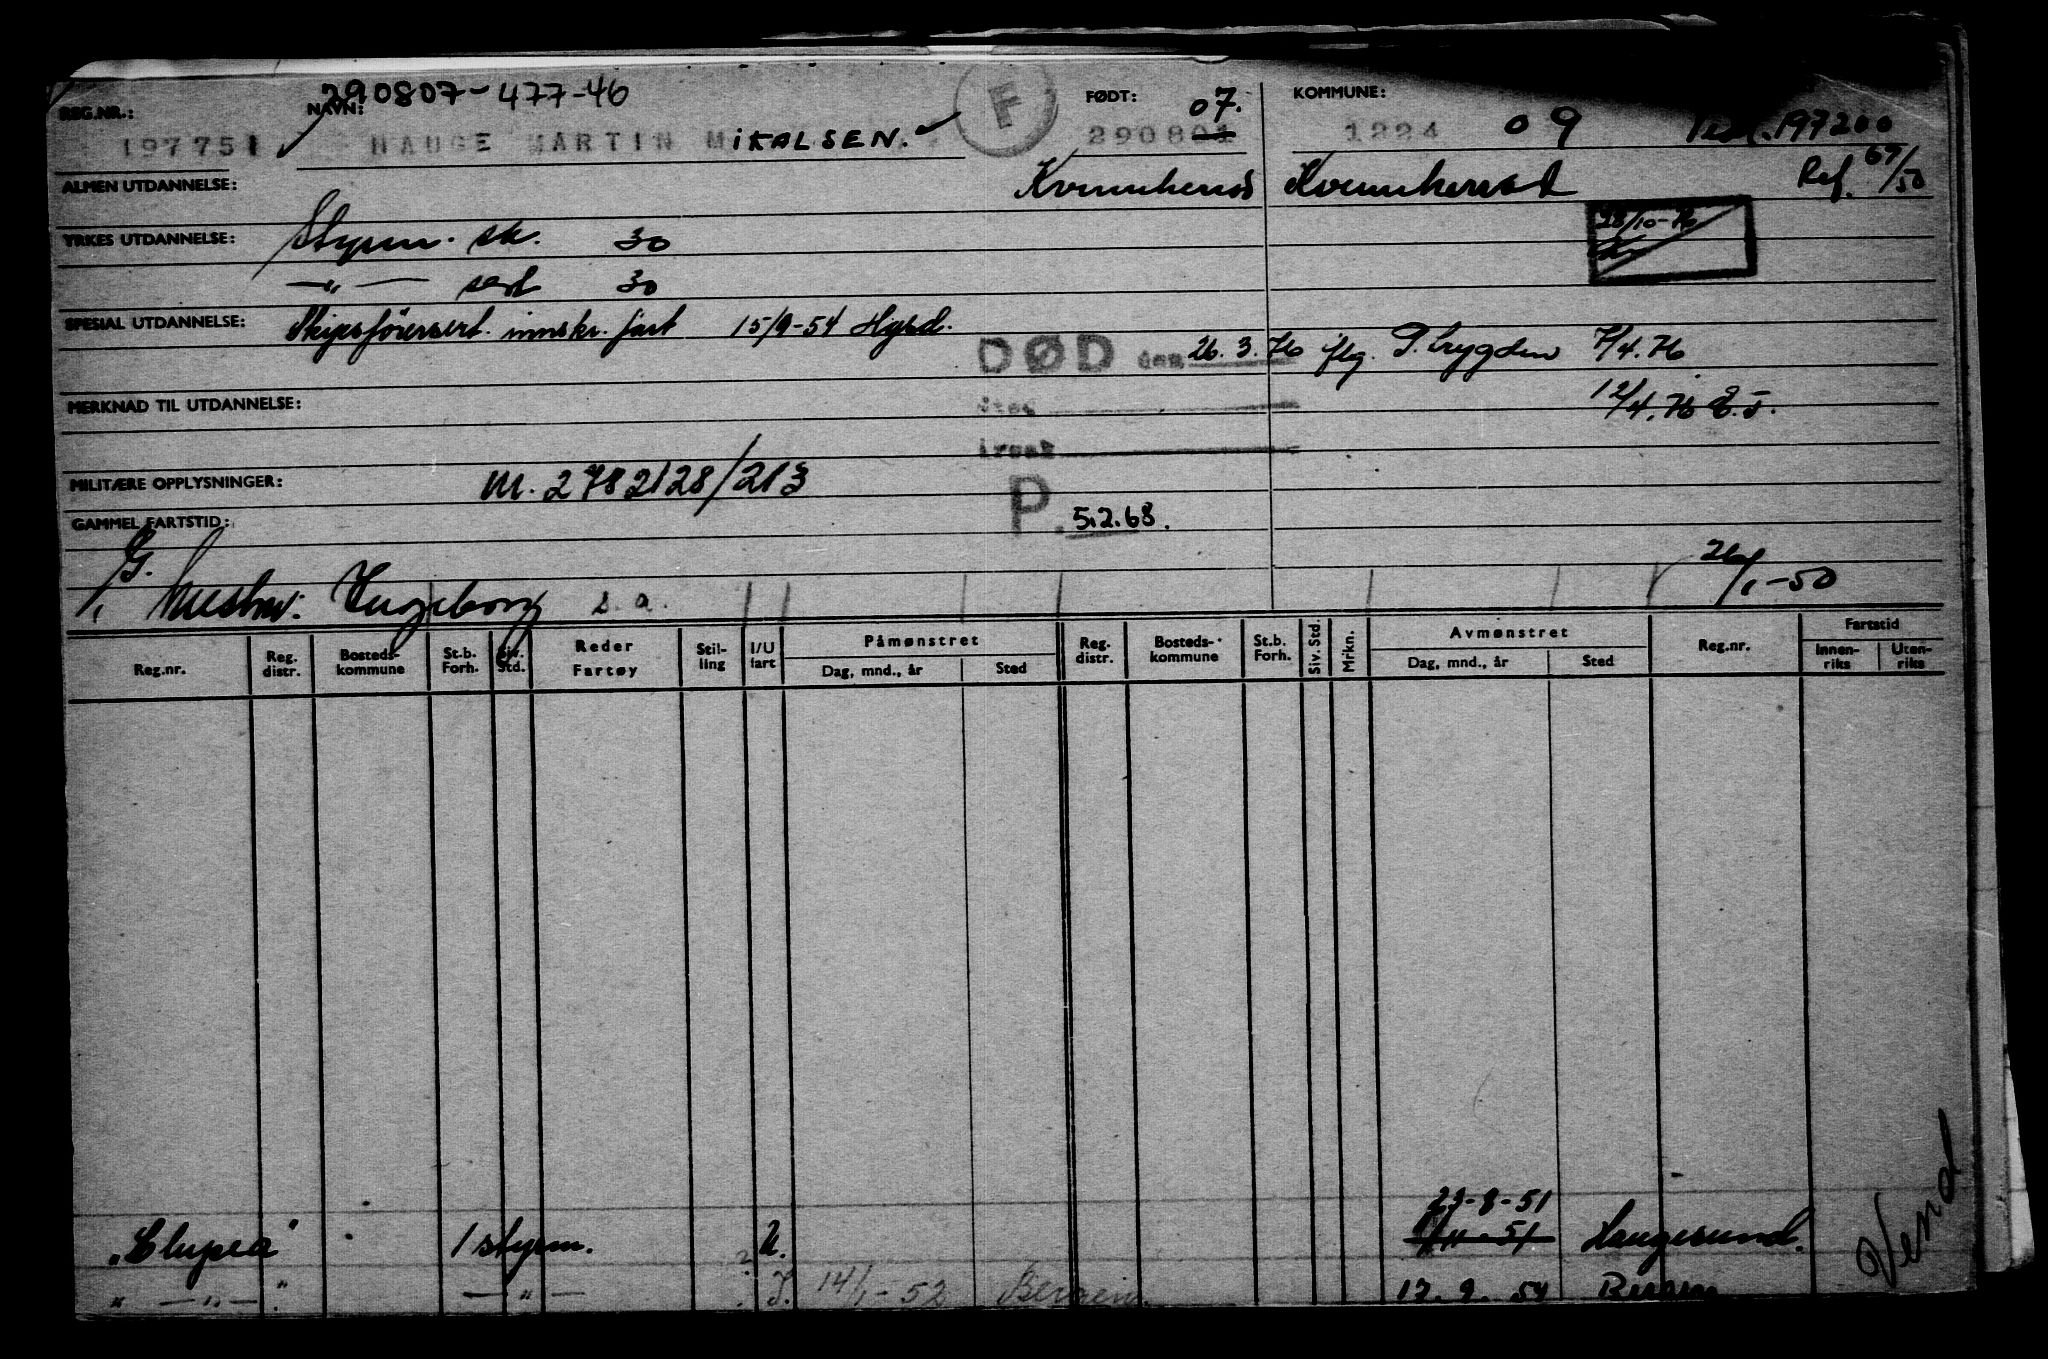 290807-477-46
REG.NR.: NAVN: F FØDT: 07. KOMMUNE:
197751 HAUGE MARTIN MIKALSEN. 290801 1224 09 197200
ALMEN UTDANNELSE: Kvinnherad Kvinnherad Ref. 67/50
YRKES UTDANNELSE: Styrm. sk. 30 28/10-76
—"— sert 30
SPESIAL UTDANNELSE: Skipsførersert. innskr. fart 15/9-54 Hgsd.
DØD den 26.3.76 iflg. P.trygden 7/4.76
MERKNAD TIL UTDANNELSE: 12/4.76
årsak
MILITÆRE OPPLYSNINGER: M. 2782128/213
GAMMEL FARTSTID: P. 5.2.68.
G.
Ingeborg s.a. 26/1-50
Reg.nr. Reg. distr. Bosteds- kommune St.b. Forh. Siv. Std. Reder Fartøy Stil- ling I/U fart Påmønstret Dag, mnd., år Sted Reg. distr. Bosteds- kommune St.b. Forh. Siv. Std. Mrkn. Avmønstret Dag, mnd., år Sted Reg.nr. Fartstid Innen- riks Uten- riks
23-8-51
"Clupea" 1 styrm. U. Haugesund.
" —"— " —"— I. 14/1-52 Bergen 12.9.54 Bergen
Vend